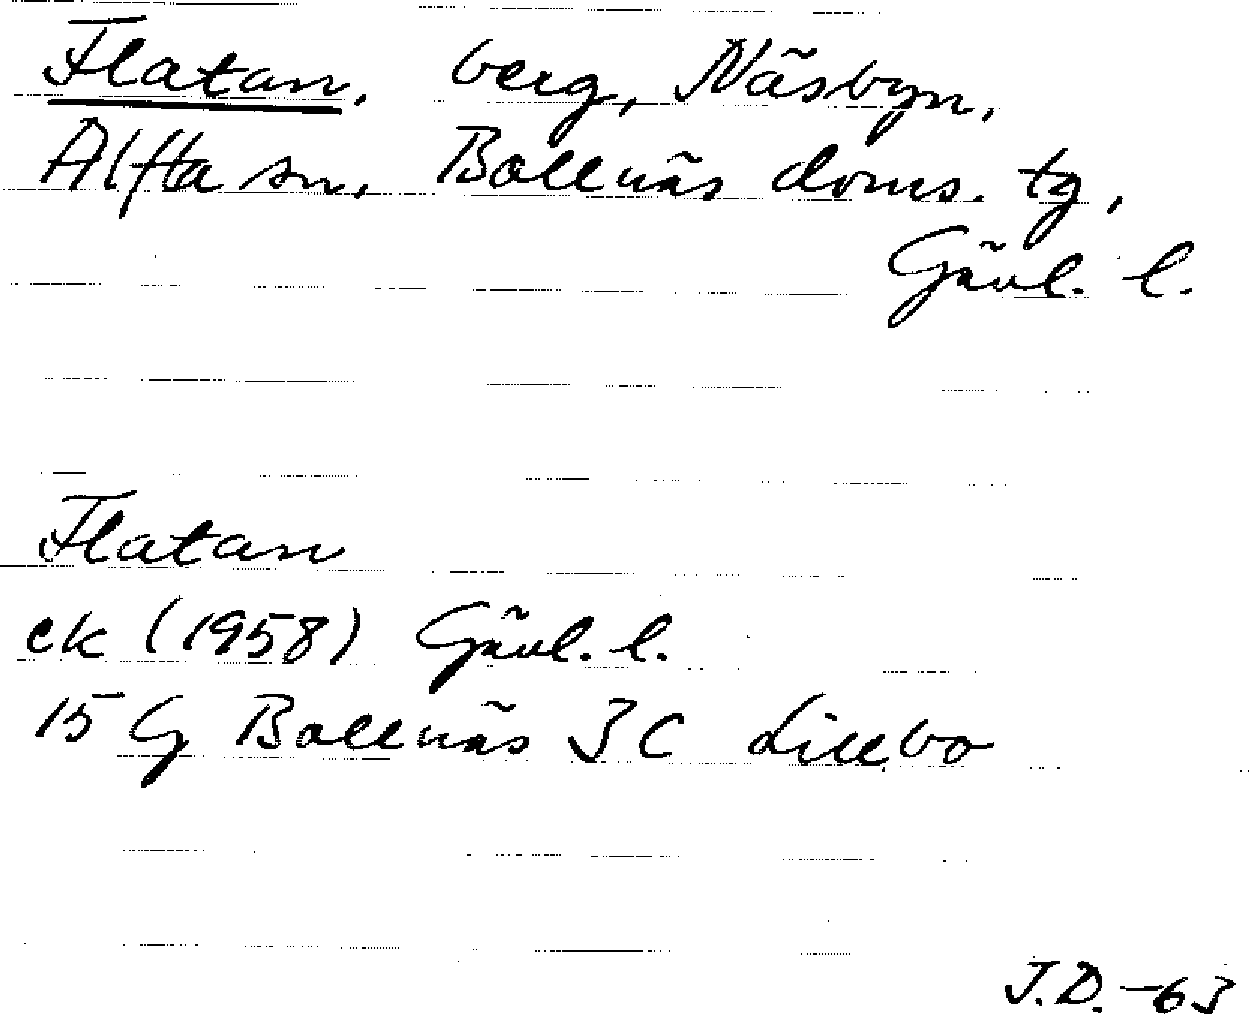 Flatan, berg, Näsbyn,
Alfta sn, Bollnäs doms. tg,
Gävl. l.
Flatan
ek (1958) Gävl. l.
15 G Bollnäs 3 C Lillbo
J.D. -63